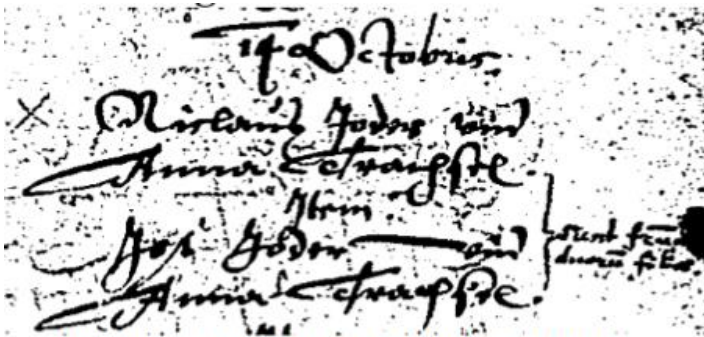 14 Octobris
Niclaus Joder und
Anna Trachsel.
Item
Jost Joder und
Anna Trachsel.
sunt
duorum